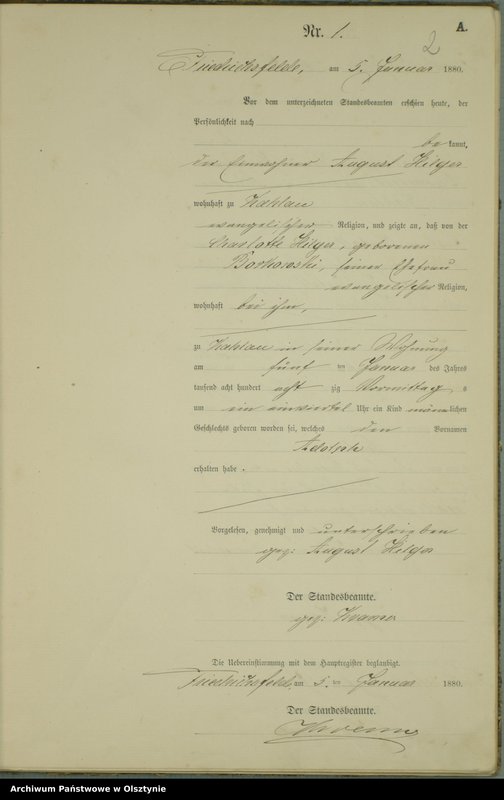 A.
Nr. 1.
2
Friedrichsfelde, am 5. Januar 1880.
Vor dem unterzeichneten Standesbeamten erschien heute, der
Persönlichkeit nach
be kannt,
der Einwohner August Hilger
wohnhaft zu
evangelischer Religion, und zeigte an, daß von der
Charlotte Hilger, geborenen
Borkowski, seiner Ehefrau
evangelischer Religion,
wohnhaft bei ihm,
zu in seiner Wohnung
am fünf ten Januar des Jahres
tausend acht hundert acht zig Vormittag s
um ein einviertel Uhr ein Kind männlichen
Geschlechts geboren worden sei, welches den Vornamen
erhalten habe.
Vorgelesen, genehmigt und unterschrieben
gez: August Hilger
Der Standesbeamte.
gez:
Die Uebereinstimmung mit dem Hauptregister beglaubigt.
Friedrichsfelde, am 5. ten Januar 1880.
Der Standesbeamte.
Archiwum Państwowe w Olsztynie